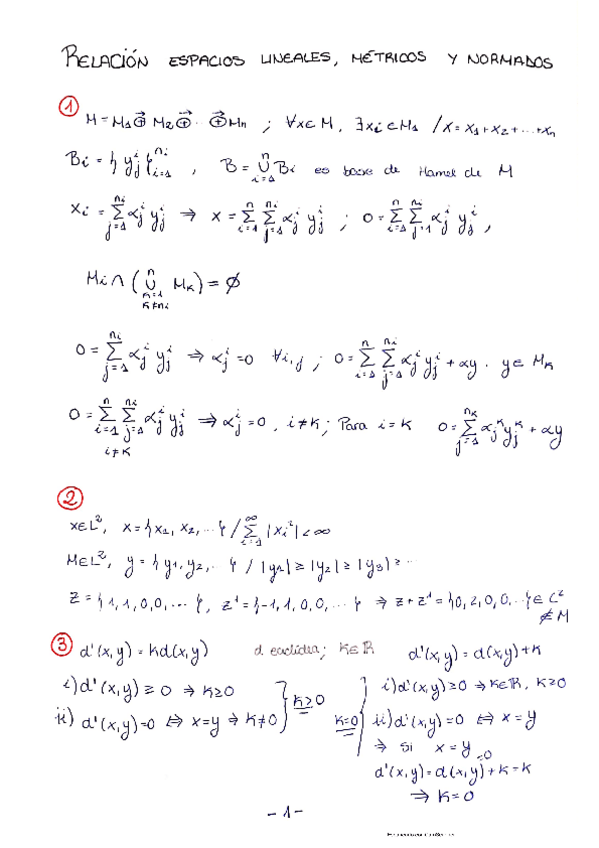 RELACIÓN ESPACIOS LINEALES, MÉTRICOS Y NORMADOS
① M = M₁ ⊕⃗ M₂ ⊕⃗ ·· ⊕⃗ Mₙ ; ∀x∈M, ∃xᵢ∈M₁ / x = x₁+x₂+...+xₙ
Bᵢ = { yⱼⁱ }ᵢ₌₁ⁿⁱ , B = ⋃ᵢ₌₁ⁿ Bᵢ es base de Hamel de M
xᵢ = ∑ⱼ₌₁ⁿⁱ αⱼⁱ yⱼⁱ ⇒ x = ∑ᵢ₌₁ⁿ ∑ⱼ₌₁ⁿⁱ αⱼⁱ yⱼⁱ ; 0 = ∑ᵢ₌₁ⁿ ∑ⱼ₌₁ⁿⁱ αⱼⁱ yⱼⁱ ,
Mᵢ ∩ ( ⋃ₖ₌₁ⁿ Mₖ ) = ∅
0 = ∑ⱼ₌₁ⁿⁱ αⱼⁱ yⱼⁱ ⇒ αⱼⁱ = 0 ∀i,j ; 0 = ∑ᵢ₌₁ⁿ ∑ⱼ₌₁ⁿⁱ αⱼⁱ yⱼⁱ + αy . y∈Mₖ
0 = ∑ᵢ₌₁ⁿ ∑ⱼ₌₁ⁿⁱ αⱼⁱ yⱼⁱ ⇒ αⱼⁱ = 0 . i≠k ; Para i=k 0 = ∑ⱼ₌₁ⁿᵏ αⱼᵏ yⱼᵏ + αy
i≠k
②
x∈L², x = { x₁, x₂, ... } / ∑ᵢ₌₁^∞ |xᵢ²| < ∞
M∈L², y = { y₁, y₂, ... } / |y₁| ≥ |y₂| ≥ |y₃| ≥ ...
z = { 1, 1, 0, 0, ... }, z¹ = { -1, 1, 0, 0, ... } ⇒ z+z¹ = { 0, 2, 0, 0, ... } ∈ L²
∉ M
③ d'(x,y) = kd(x,y) d euclídea; k∈ℝ d'(x,y) = d(x,y)+k
i) d'(x,y) ≥ 0 ⇒ k≥0
ii) d'(x,y)=0 ⇔ x=y ⇒ k≠0
k>0
i) d'(x,y) ≥0 ⇒ k∈ℝ, k≥0
k=0
ii) d'(x,y)=0 ⇔ x=y
⇒ si x=y
d'(x,y) = d(x,y)+k = k
0
⇒ k=0
- 1 -